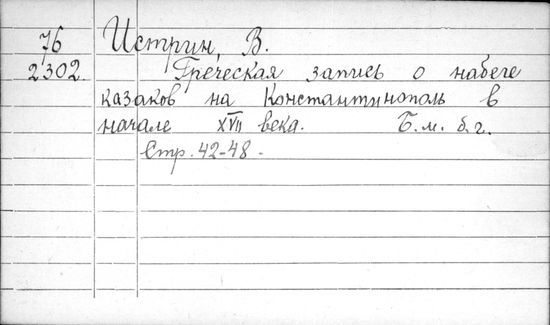 76 Истрин, В.
2302. Греческая запись о набеге
казаков на Константинополь в
начале XVII века. Б.м. б.г.
Стр. 42-48.